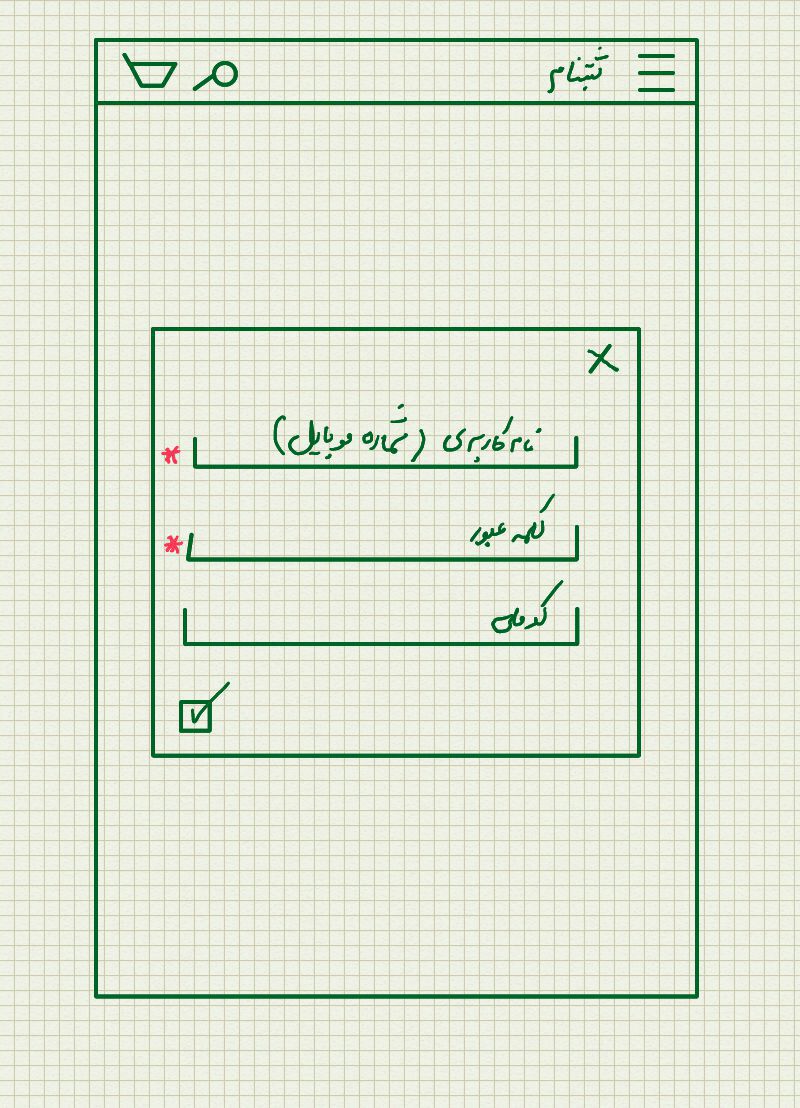 ثبتنام
نام کاربری (شماره موبایل)
*
کلمه عبور
*
کدملی